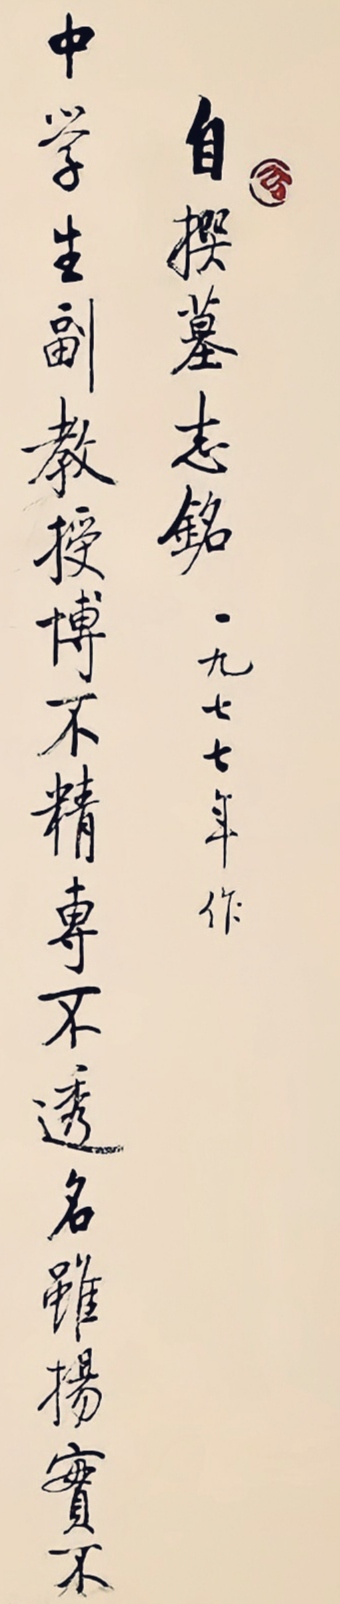 自撰墓志銘 一九七七年作
中学生副教授博不精專不透名雖揚實不